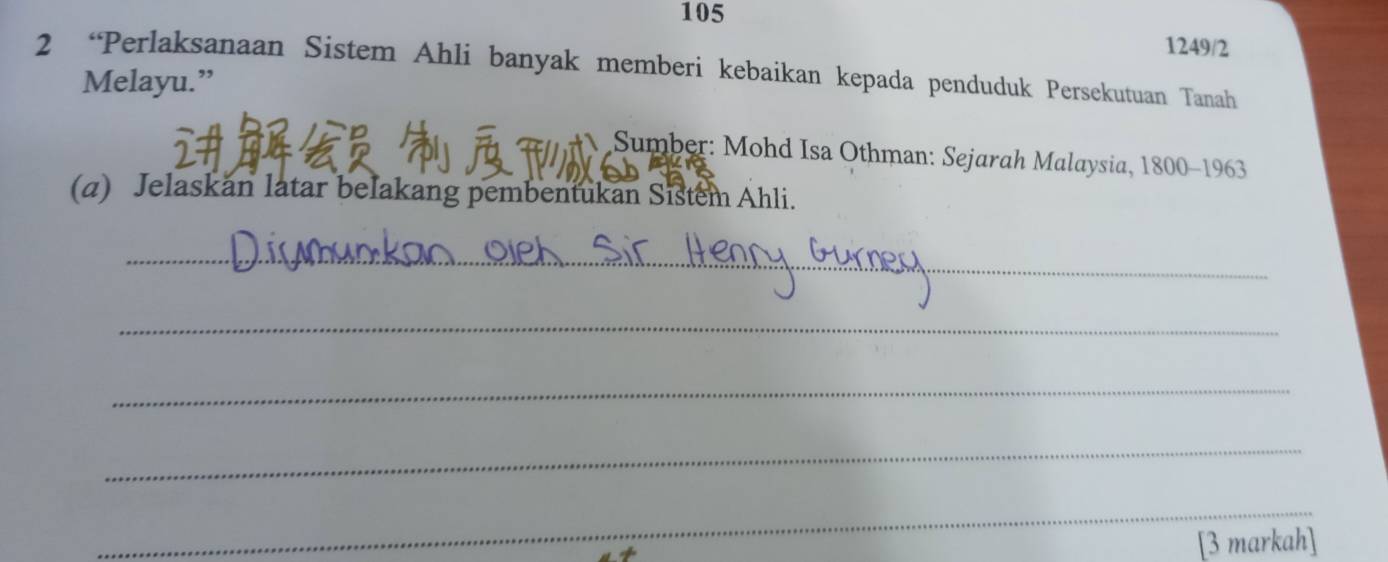 105
1249/2
2 “Perlaksanaan Sistem Ahli banyak memberi kebaikan kepada penduduk Persekutuan Tanah
Melayu.”
Sumber: Mohd Isa Othman: Sejarah Malaysia, 1800–1963
讲解会员制度形成的背景
(a) Jelaskan latar belakang pembentukan Sistem Ahli.
Diumumkan oleh Sir Henry Gurney
[3 markah]